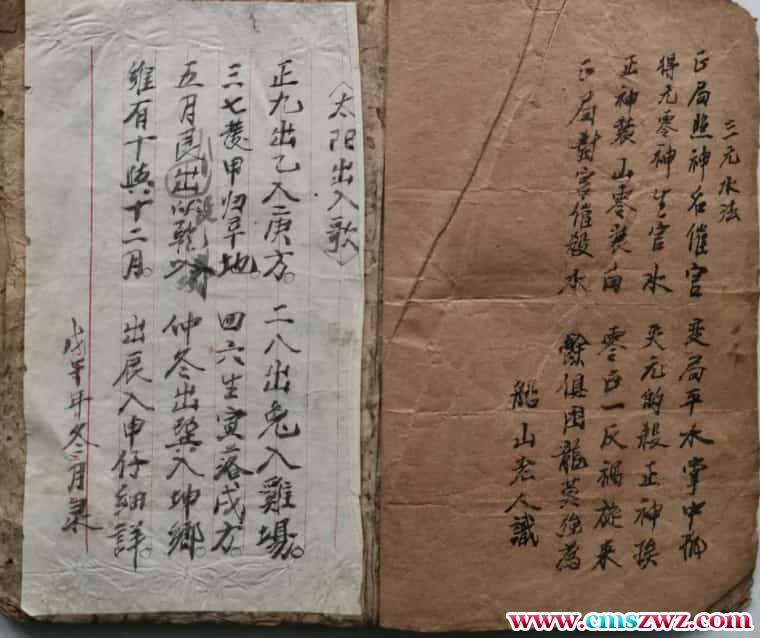 三元水法
正局照神名催官 变局平水掌中
得元零神生官水 失元的殺正神挨
正神裝山零裝向 零正一反禍旋来
正局對宮催殺水 餘俱困龍莫強為
船山老人識
〈太阳出入歌〉
正九出乙入庚方。二八出兔入雞場。
三七發甲归辛地。四六生寅落戌方。
五月艮出以乾 仲冬出巽入坤鄉。
維有十與十二月。出辰入申仔細詳。
戊午年冬二月录
www.cmszwz.com